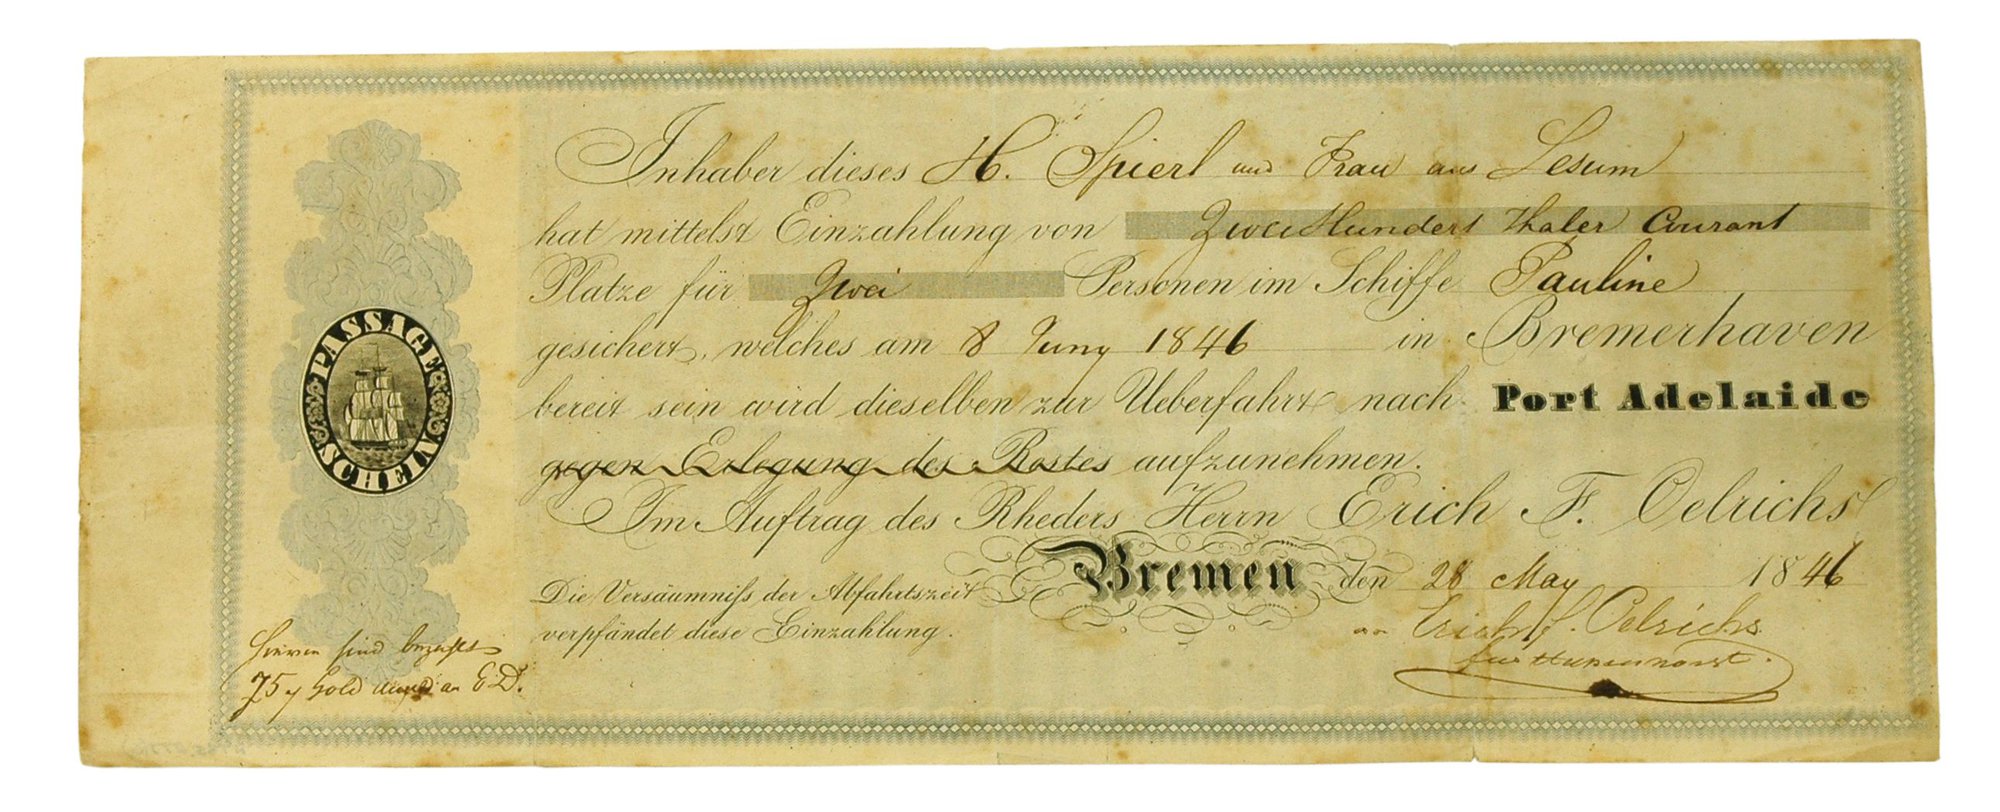 PASSAGE SCHEIN
Inhaber dieses H. Spierl und Frau aus Lesum
hat mittelst Einzahlung von Zwei Hundert Thaler Courant
Platze für Zwei Personen im Schiffe Pauline
gesichert, welches am 8 Juny 1846 in Bremerhaven
bereit sein wird dieselben zur Ueberfahrt nach Port Adelaide
gegen Erlegung des Restes aufzunehmen.
Im Auftrag des Rheders Herrn Erich F. Oelrichs
Bremen den 28 May 1846
Die Versäumniss der Abfahrtszeit
verpfändet diese Einzahlung.
Erich F. Oelrichs
Hiervon sind bezahlt
75 Gold